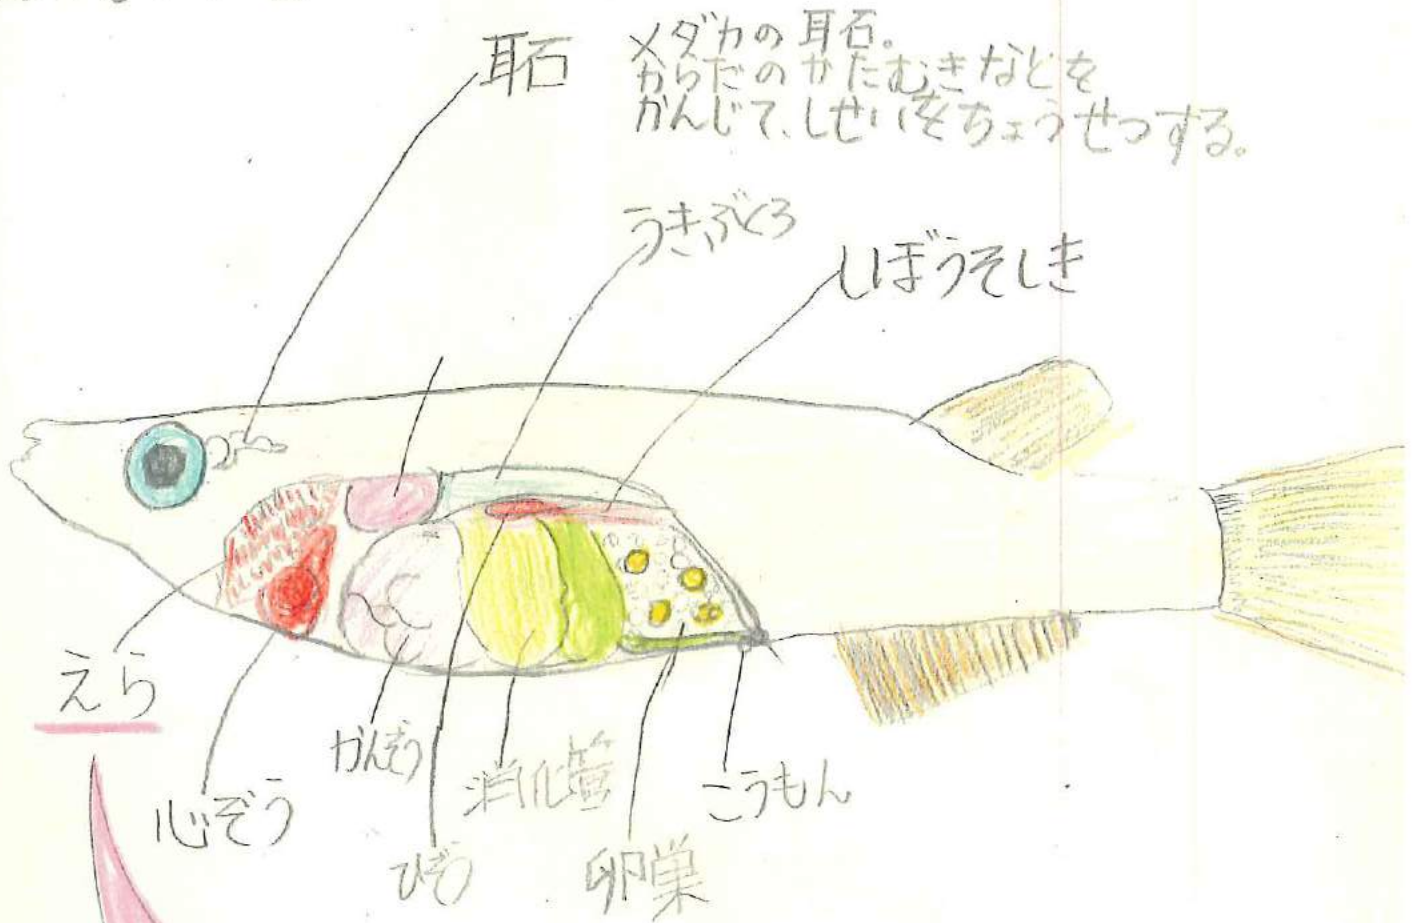 耳石
メダカの耳石。
からだのかたむきなどを
かんじて、しせいをちょうせつする。
うきぶくろ
しぼうそしき
えら
心ぞう
かんぞう
ひぞう
消化管
卵巣
こうもん